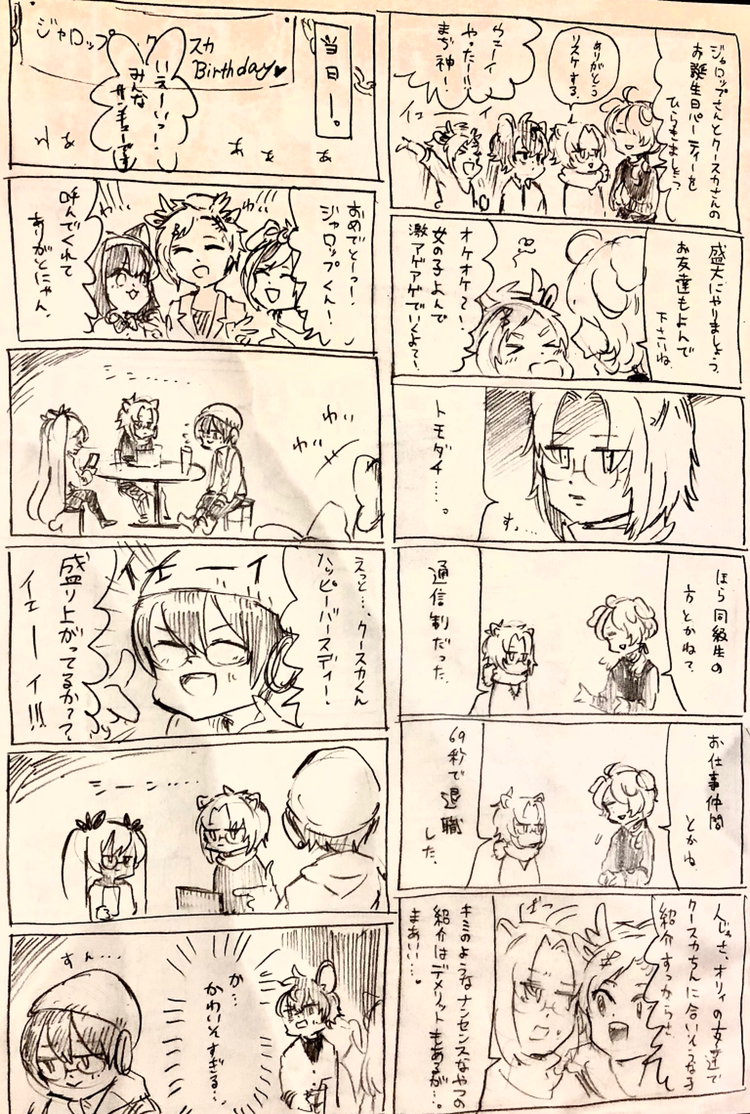 ジャロップさんとクースカさんの
お誕生日パーティーを
ひらきましょう
ありがとう
リスケする。
ウェーイ
やったー!!!
まぢ神ー!
イェーイ
盛大にやりましょう。
お友達もよんで
下さいね。
オケオケ〜い、
女の子よんで
激アゲアゲでいくよて〜い、
トモダチ……。
す…
ほら同級生の
方とかね?
通信制だった。
お仕事仲間
とかね。
69秒で退職
した。
人じゃさ、オリィの女友達で
クースカちんに合いそうな子
紹介すっからさ、
ばっ
キミのようなナンセンスなやつの
紹介はデメリットもあるが…。
まあい…。
当日ー。
ジャロップ ク スカ
Birthday♥
いえーいっ!
みんな
サンキューです
わいわい
おめでとーっ!
ジャロップくんー!
呼んでくれて
ありがとにゃん。
わい
わい
えっと…、クースカくん
ハッピーバースディー!
イエーイ
盛り上がってるか??
イエーイ!!!
シーン……
か…
かわいそすぎる…
すん…